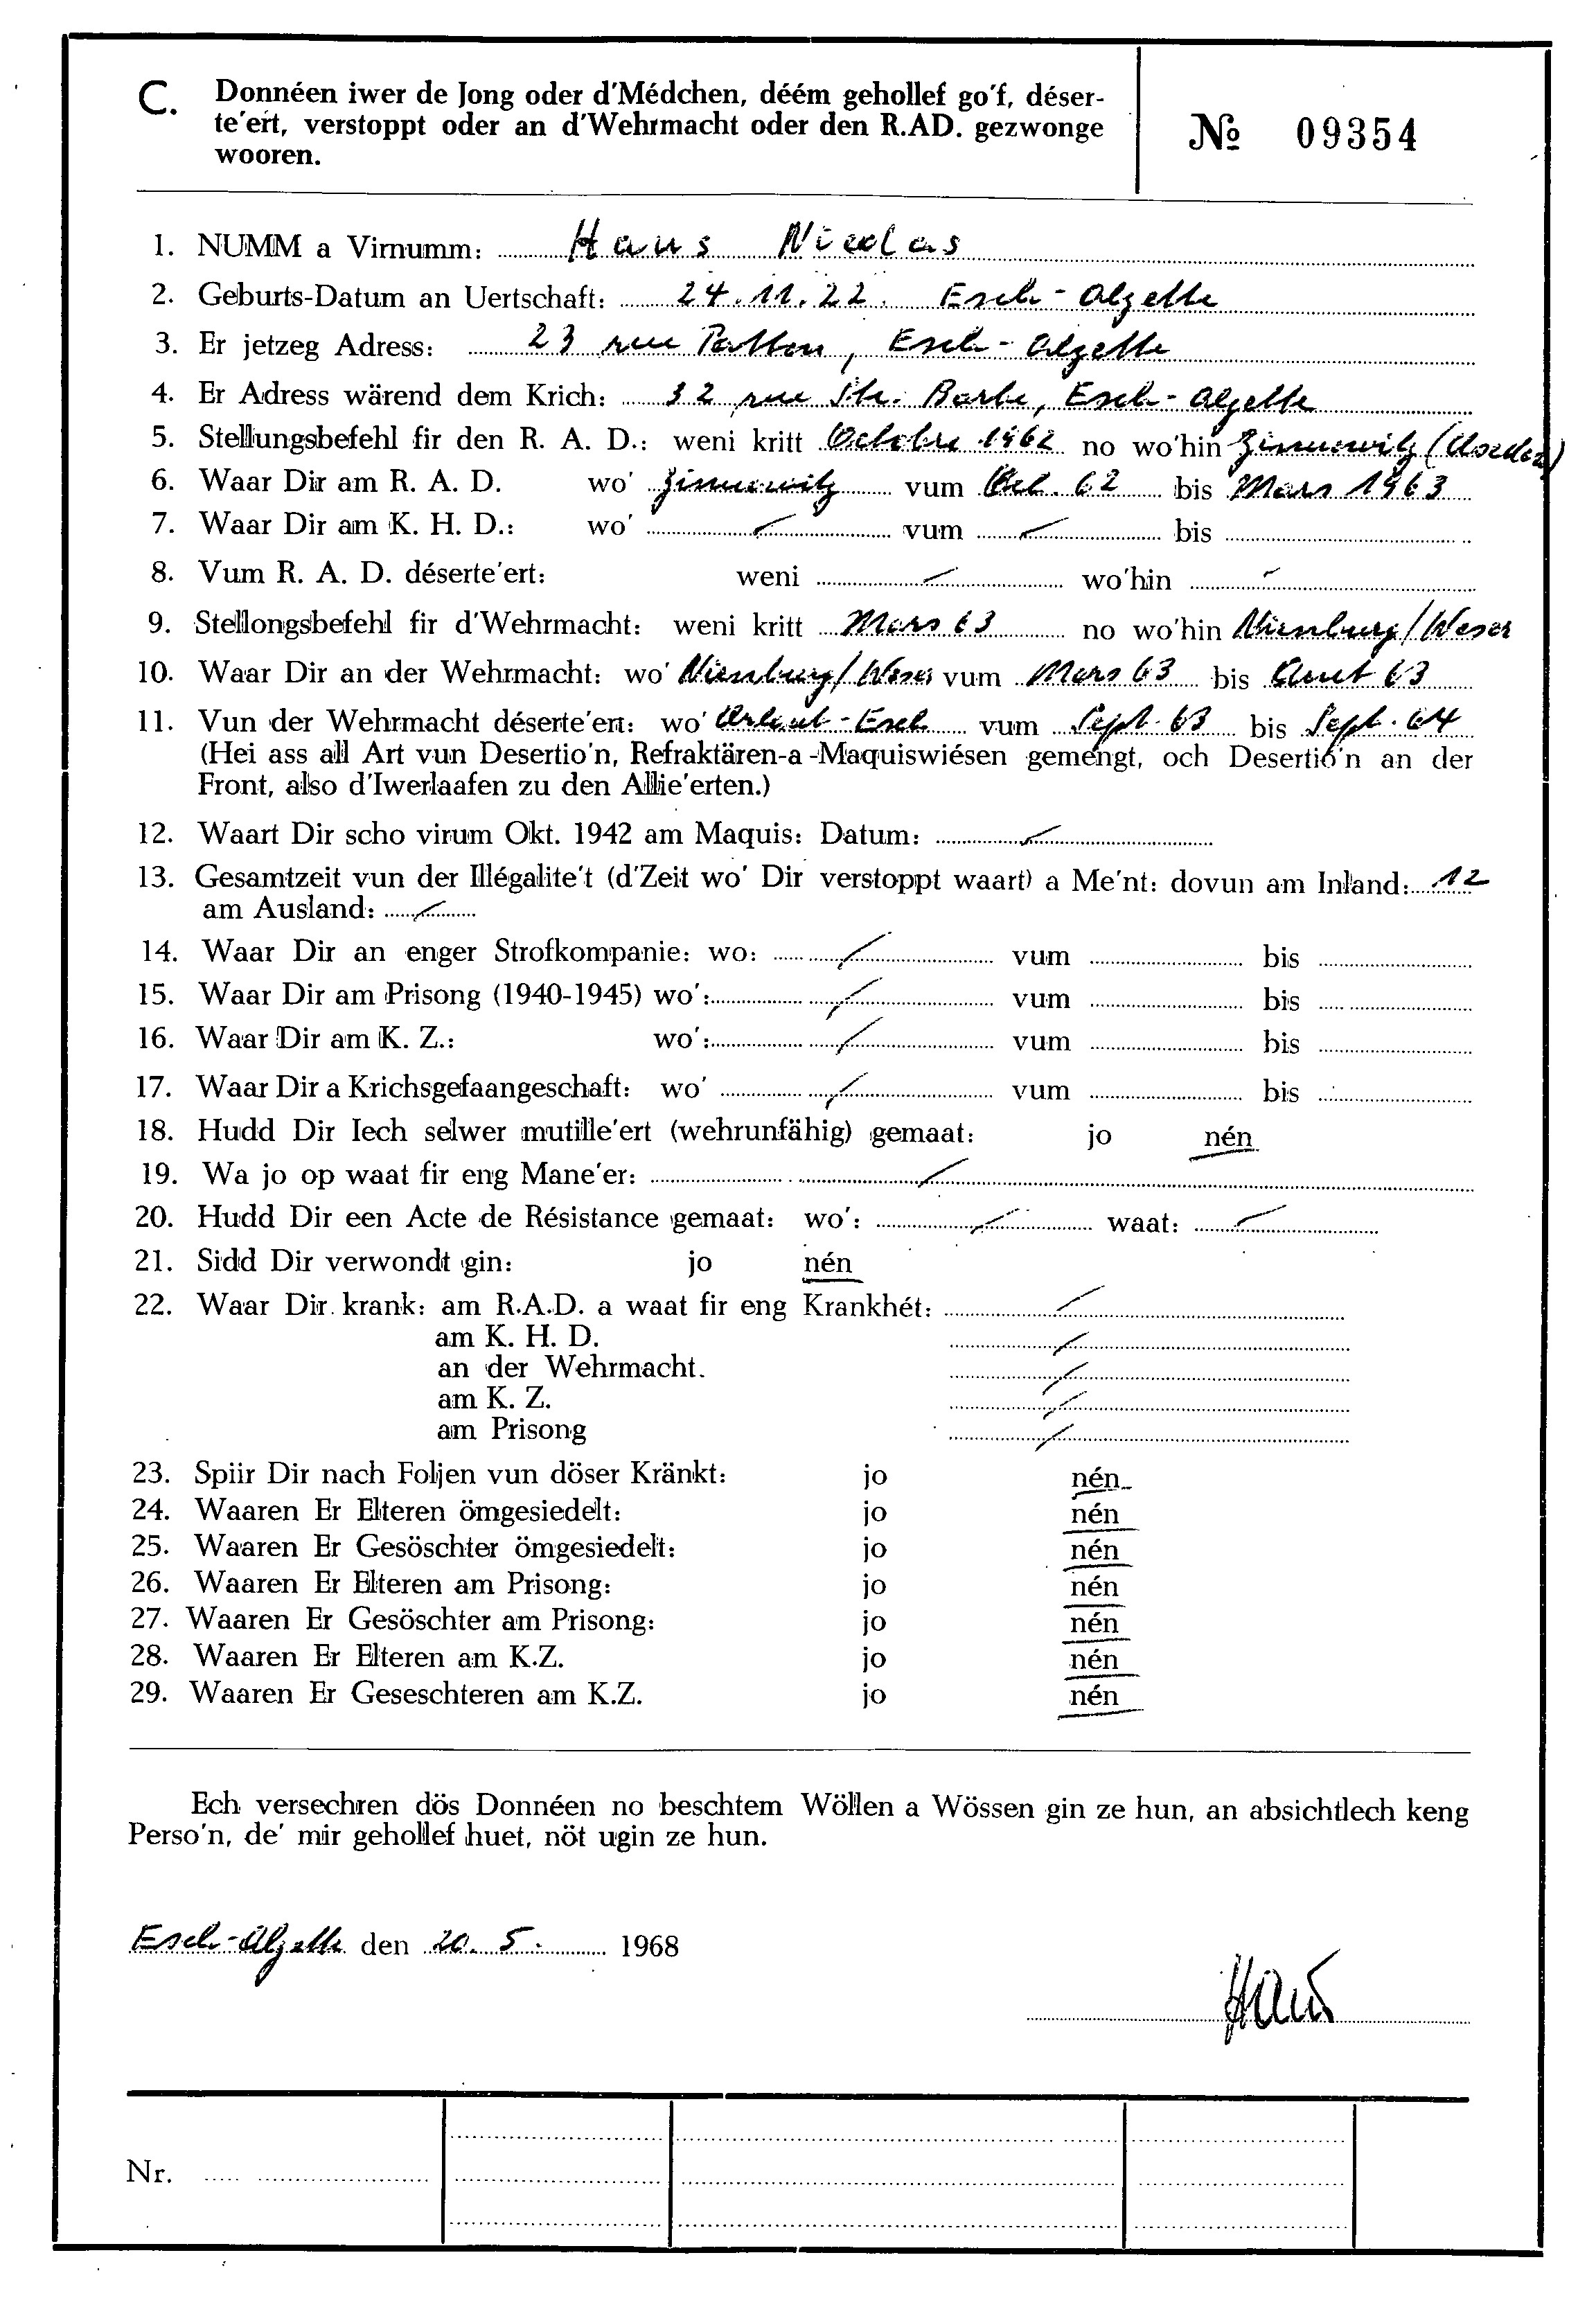 C. Donnéen iwer de Jong oder d'Médchen, déém gehollef go'f, déser-
te'ert, verstoppt oder an d'Wehrmacht oder den R.AD. gezwonge
wooren.
№ 09354
1. NUMM a Virnumm: Haus Nicolas
2. Geburts-Datum an Uertschaft: 24.11.22. Esch-Alzette
3. Er jetzeg Adress: 23 rue Patton, Esch-Alzette
4. Er Adress wärend dem Krich: 32 rue Ste. Barbe, Esch-Alzette
5. Stellungsbefehl fir den R. A. D.: weni kritt Octobre 1962 no wo'hin Zinnowitz (Usedom)
6. Waar Dir am R. A. D. wo' Zinnowitz vum Oct. 62 bis Mars 1963
7. Waar Dir am K. H. D.: wo' vum bis
8. Vum R. A. D. déserte'ert: weni wo'hin
9. Stellongsbefehl fir d'Wehrmacht: weni kritt Mars 63 no wo'hin Nienburg/Weser
10. Waar Dir an der Wehrmacht: wo' Nienburg/Weser vum Mars 63 bis Aout 63
11. Vun der Wehrmacht déserte'ert: wo' Urlaub-Esch vum Sept. 63 bis Sept. 64
(Hei ass all Art vun Desertio'n, Refraktären-a-Maquiswiésen gemengt, och Desertio'n an der
Front, also d'Iwerlaafen zu den Allie'erten.)
12. Waart Dir scho virum Okt. 1942 am Maquis: Datum:
13. Gesamtzeit vun der Illégalite't (d'Zeit wo' Dir verstoppt waart) a Me'nt: dovun am Inland: 12
am Ausland:
14. Waar Dir an enger Strofkompanie: wo: vum bis
15. Waar Dir am Prisong (1940-1945) wo': vum bis
16. Waar Dir am K. Z.: wo': vum bis
17. Waar Dir a Krichsgefaangeschaft: wo' vum bis
18. Hudd Dir Iech selwer mutille'ert (wehrunfähig) gemaat: jo nén
19. Wa jo op waat fir eng Mane'er:
20. Hudd Dir een Acte de Résistance gemaat: wo': waat:
21. Sidd Dir verwondt gin: jo nén
22. Waar Dir krank: am R.A.D. a waat fir eng Krankhét:
am K. H. D.
an der Wehrmacht.
am K. Z.
am Prisong
23. Spiir Dir nach Foljen vun döser Kränkt: jo nén
24. Waaren Er Elteren ömgesiedelt: jo nén
25. Waaren Er Gesöschter ömgesiedelt: jo nén
26. Waaren Er Elteren am Prisong: jo nén
27. Waaren Er Gesöschter am Prisong: jo nén
28. Waaren Er Elteren am K.Z. jo nén
29. Waaren Er Geseschteren am K.Z. jo nén
Ech versechren dös Donnéen no beschtem Wöllen a Wössen gin ze hun, an absichtlech keng
Perso'n, de' mir gehollef huet, nöt ugin ze hun.
Esch-Alzette den 20. 5. 1968
Haus
Nr.